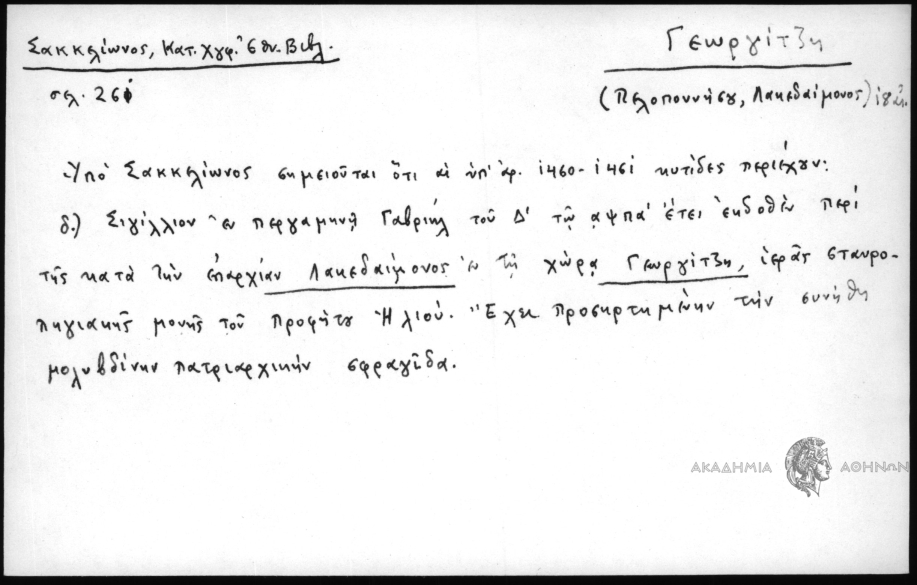 Σακκελίωνος, Κατ. Χγφ. Ἐθν. Βιβλ.
Γεωργίτζη
σελ. 261
(Πελοποννήσου, Λακεδαίμονος)
Ὑπό Σακκελίωνος σημειοῦται ὅτι αἱ ὑπ' ἀρ. 1460-1461 κυτίδες περιέχουν:
δ.) Σιγίλλιον ἐν περγαμηνῇ Γαβριήλ τοῦ Δ' τῷ αψπα' ἔτει ἐκδοθέν περί
τῆς κατὰ τὴν ἐπαρχίαν Λακεδαίμονος ἐν τῇ χώρᾳ Γεωργίτζη, ἱερᾶς σταυρο-
πηγιακῆς μονῆς τοῦ Προφήτου Ἠλιού. Ἔχει προσηρτημένην τὴν συνήθη
μολυβδίνην πατριαρχικήν σφραγῖδα.
ΑΚΑΔΗΜΙΑ ΑΘΗΝΩΝ